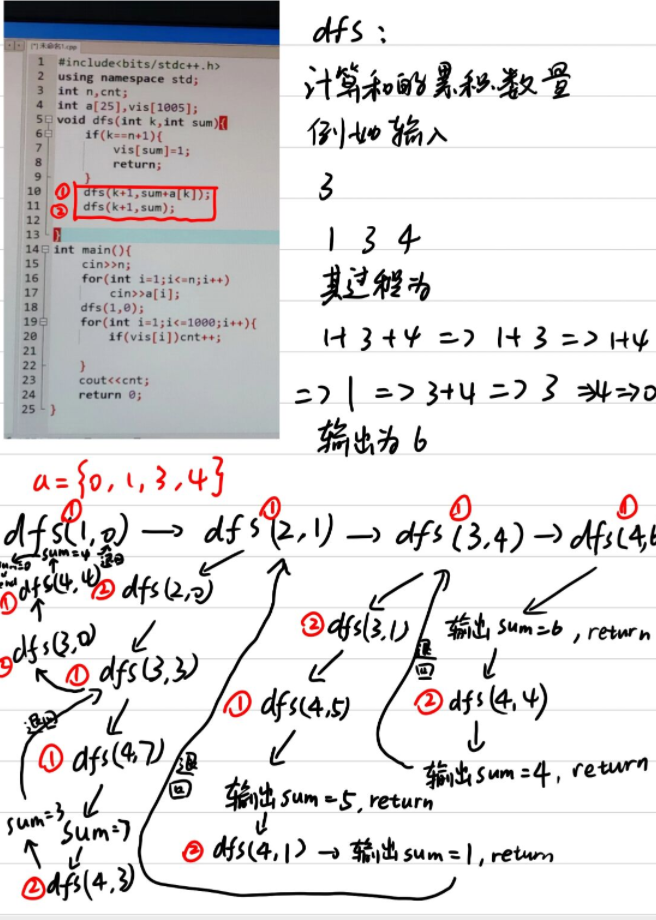 [*] 未命名1.cpp
1 #include<bits/stdc++.h>
2 using namespace std;
3 int n,cnt;
4 int a[25],vis[1005];
5 void dfs(int k,int sum){
6 if(k==n+1){
7 vis[sum]=1;
8 return;
9 }
① 10 dfs(k+1,sum+a[k]);
② 11 dfs(k+1,sum);
12
13 }
14 int main(){
15 cin>>n;
16 for(int i=1;i<=n;i++)
17 cin>>a[i];
18 dfs(1,0);
19 for(int i=1;i<=1000;i++){
20 if(vis[i])cnt++;
21
22 }
23 cout<<cnt;
24 return 0;
25 }
dfs:
计算和的累积数量
例如输入
3
1 3 4
其过程为
1+3+4 => 1+3 => 1+4
=> 1 => 3+4 => 3 => 4 => 0
输出为 6
a={0,1,3,4}
① ① ① ①
dfs(1,0) → dfs(2,1) → dfs(3,4) → dfs(4,
sum=0 sum=4 退回
① dfs(4,4) ② dfs(2,0)
② dfs(3,1) 输出 sum=6, return
② dfs(3,0) ① dfs(3,3)
退回
① dfs(4,5) ② dfs(4,4)
退回
① dfs(4,7) 退回
输出 sum=5, return 输出 sum=4, return
sum=3 sum=7
② dfs(4,1) → 输出 sum=1, return
② dfs(4,3)